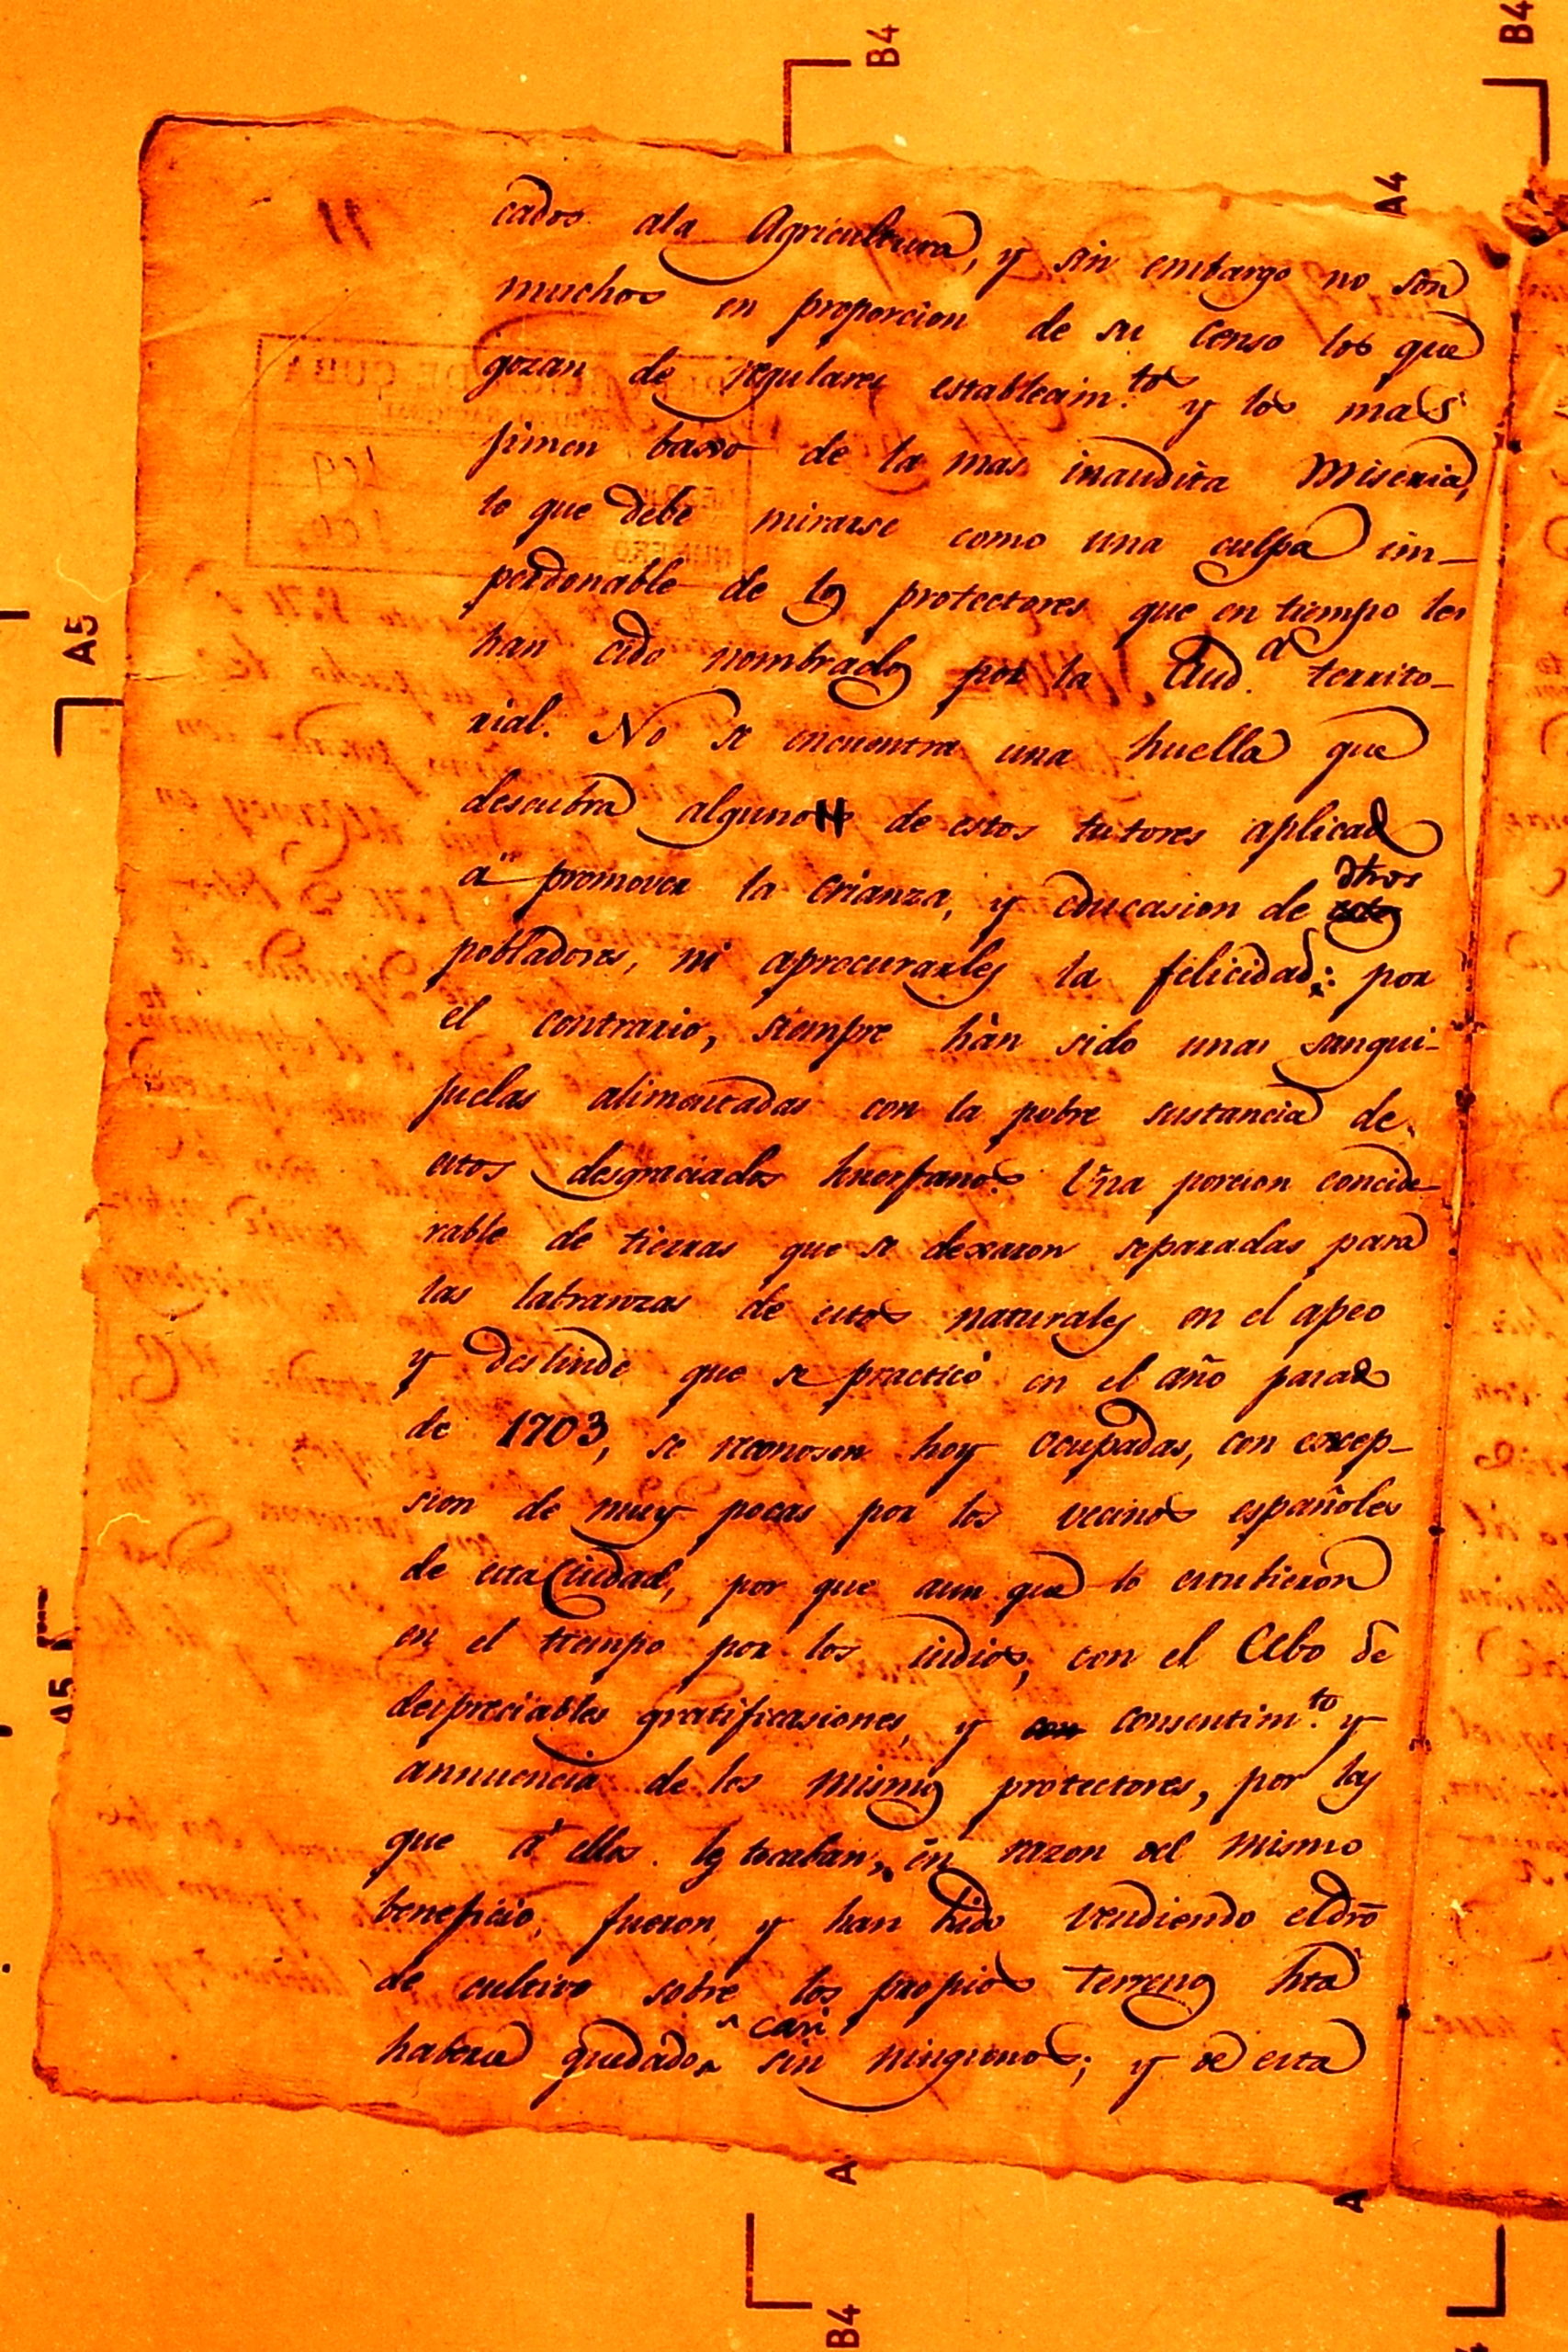 B4
B4
A4
11
cados ala Agricultura, y sin embargo no son
muchos en proporcion de su censo los que
gozan de regulares establecim.tos y los mas
jimen baxo de la mas inaudita Miseria,
lo que debe mirarse como una culpa im-
perdonable de los protectores que en tiempo les
han cido nombrados por la Aud.a territo-
rial. No se encuentra una huella que
descubra alguno de estos tutores aplicad
a promover la crianza, y educasion de dhos
pobladores, ni aprocurarles la felicidad: por
el contrario, siempre hàn sido unas sangui-
juelas alimentadas con la pobre sustancia de
estos desgraciados huerfanos. Una porcion concide-
rable de tierras que se dexaron separadas para
las labranzas de estos naturales en el apeo
y deslinde que se practicó en el año pasado
de 1703, se reconosen hoy ocupadas, con excep-
sion de muy pocas por los vecinos españoles
de esta Ciudad, por que aun que lo estubierón
en el tiempo por los indios, con el Cebo de
despreciables gratificasiones, y consentim.to y
annuencia de los mismos protectores, por los
que á ellos les tocaban, en razon del mismo
beneficio, fueron, y han hido vendiendo el dro
de cultivo sobre los propios terrenos hta
haberse quedado casi sin ningunos; y de esta
A5
A5
A
A
B4